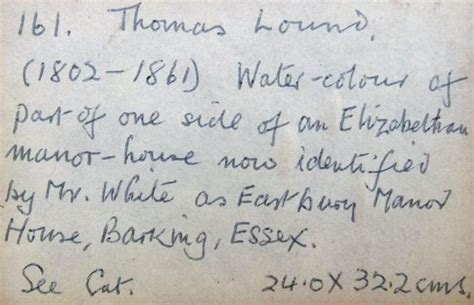 161. Thomas Lound.
(1802-1861) Water-colour of
part of one side of an Elizabethan
manor-house now identified
by Mr. White as Eastbury Manor
House, Barking, Essex.
See Cat. 24.0 X 32.2 cms.